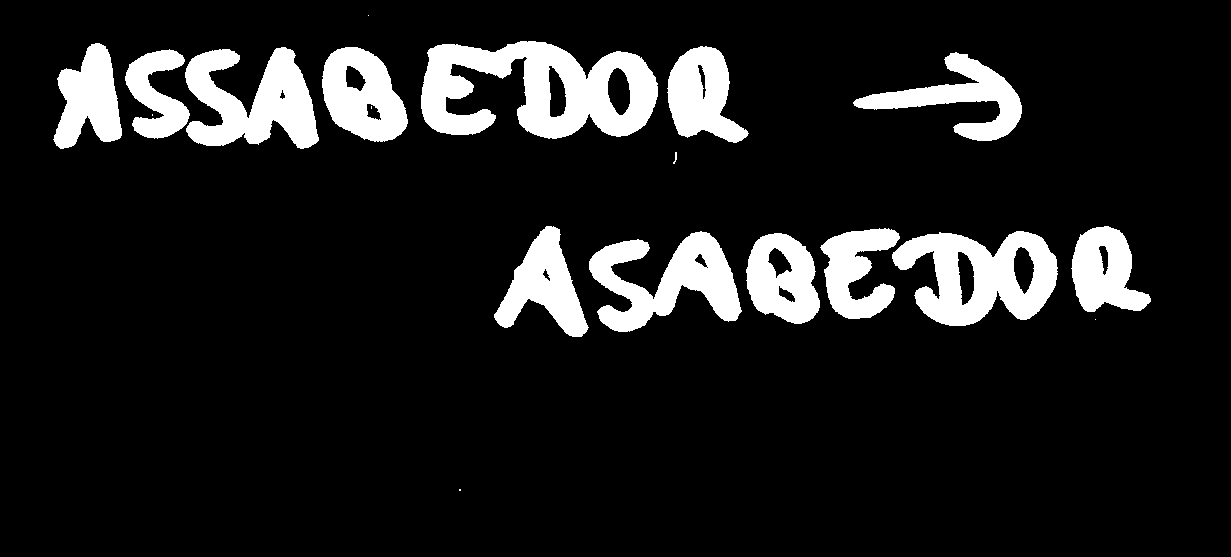 ASSABEDOR →
ASABEDOR